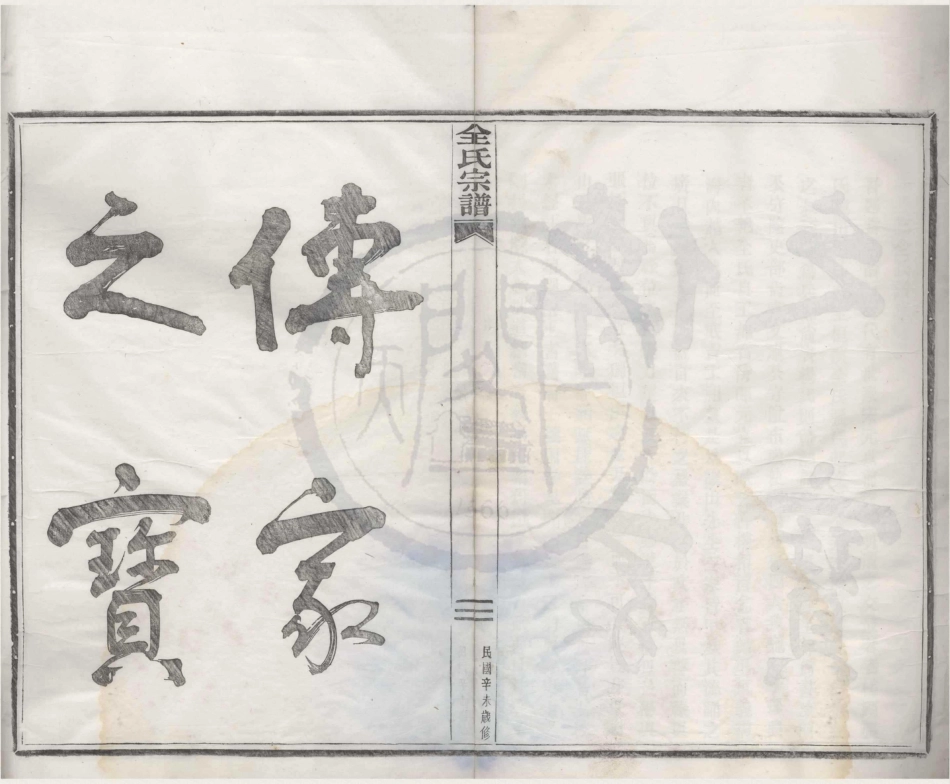 全氏宗譜
民國辛未歲修
傳家
之寶